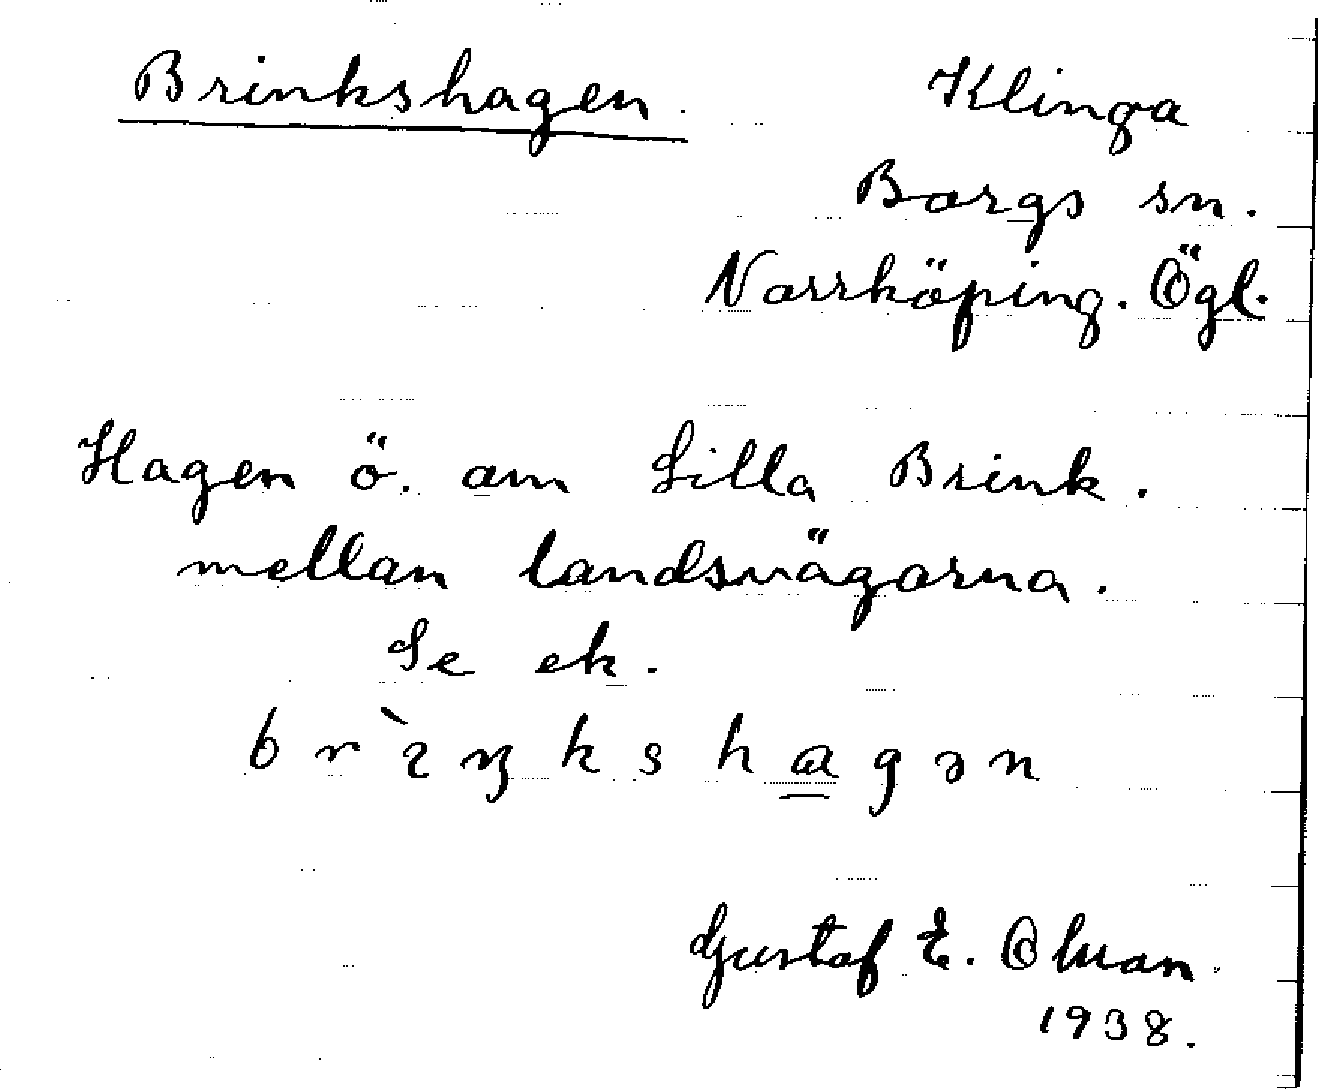 Brinkshagen.
Klinga
Borgs sn.
Norrköping. Ögl.
Hagen ö. om Lilla Brink.
mellan landsvägarna.
Se ek.
brìŋkshagən
Gustaf E. Olson.
1938.